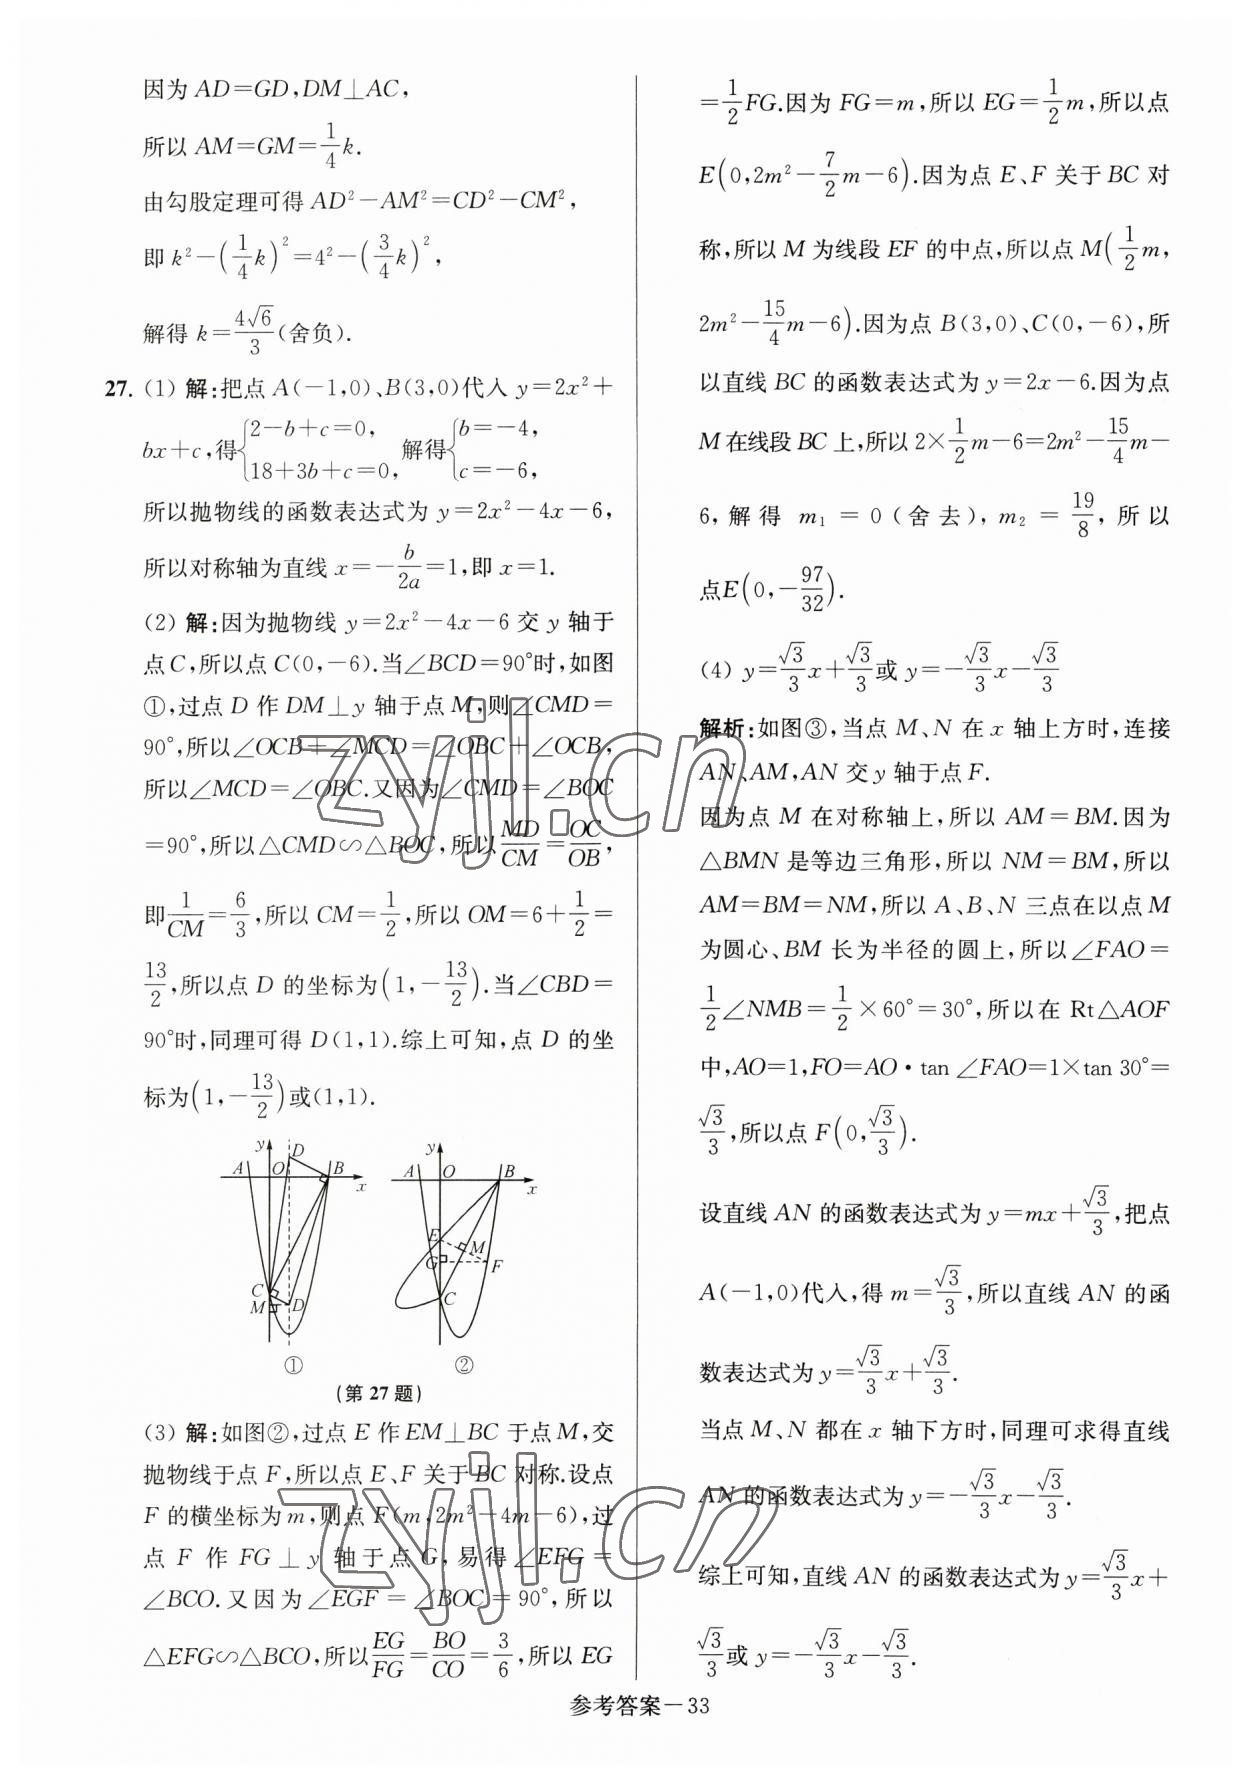 因为 AD=GD,DM⊥AC,
所以 AM=GM=1/4k.
由勾股定理可得 AD²-AM²=CD²-CM²,
即 k²-(1/4k)²=4²-(3/4k)²,
解得 k=4√6/3(舍负).
27. (1) 解:把点 A(-1,0)、B(3,0)代入 y=2x²+
bx+c,得{2-b+c=0, 18+3b+c=0, 解得{b=-4, c=-6,
所以抛物线的函数表达式为 y=2x²-4x-6,
所以对称轴为直线 x=-b/2a=1,即 x=1.
(2) 解:因为抛物线 y=2x²-4x-6 交 y 轴于
点C,所以点 C(0,-6).当∠BCD=90°时,如图
①,过点 D 作 DM⊥y 轴于点 M,则∠CMD=
90°,所以∠OCB+∠MCD=∠OBC+∠OCB,
所以∠MCD=∠OBC.又因为∠CMD=∠BOC
=90°,所以△CMD∽△BOC,所以MD/CM=OC/OB,
即1/CM=6/3,所以 CM=1/2,所以 OM=6+1/2=
13/2,所以点 D 的坐标为(1,-13/2).当∠CBD=
90°时,同理可得 D(1,1).综上可知,点 D 的坐
标为(1,-13/2)或(1,1).
y
D
A
O
B
x
C
M
D
①
y
A
O
B
x
E
M
G
F
C
②
(第 27 题)
(3) 解:如图②,过点 E 作 EM⊥BC 于点 M,交
抛物线于点 F,所以点 E、F 关于 BC 对称.设点
F 的横坐标为 m,则点 F(m,2m²-4m-6),过
点 F 作 FG⊥y 轴于点 G,易得∠EFG=
∠BCO.又因为∠EGF=∠BOC=90°,所以
△EFG∽△BCO,所以EG/FG=BO/CO=3/6,所以 EG
=1/2FG.因为 FG=m,所以 EG=1/2m,所以点
E(0,2m²-7/2m-6).因为点 E、F 关于 BC 对
称,所以 M 为线段 EF 的中点,所以点 M(1/2m,
2m²-15/4m-6).因为点 B(3,0)、C(0,-6),所
以直线 BC 的函数表达式为 y=2x-6.因为点
M 在线段 BC 上,所以 2×1/2m-6=2m²-15/4m-
6,解得 m₁=0(舍去),m₂=19/8,所以
点E(0,-97/32).
(4) y=√3/3x+√3/3或 y=-√3/3x-√3/3
解析:如图③,当点 M、N 在 x 轴上方时,连接
AN、AM,AN 交 y 轴于点 F.
因为点 M 在对称轴上,所以 AM=BM.因为
△BMN 是等边三角形,所以 NM=BM,所以
AM=BM=NM,所以 A、B、N 三点在以点 M
为圆心、BM 长为半径的圆上,所以∠FAO=
1/2∠NMB=1/2×60°=30°,所以在 Rt△AOF
中,AO=1,FO=AO·tan∠FAO=1×tan 30°=
√3/3,所以点 F(0,√3/3).
设直线 AN 的函数表达式为 y=mx+√3/3,把点
A(-1,0)代入,得 m=√3/3,所以直线 AN 的函
数表达式为 y=√3/3x+√3/3.
当点 M、N 都在 x 轴下方时,同理可求得直线
AN 的函数表达式为 y=-√3/3x-√3/3.
综上可知,直线 AN 的函数表达式为 y=√3/3x+
√3/3或 y=-√3/3x-√3/3.
参考答案－33
zyjl.cn
zyjl.cn